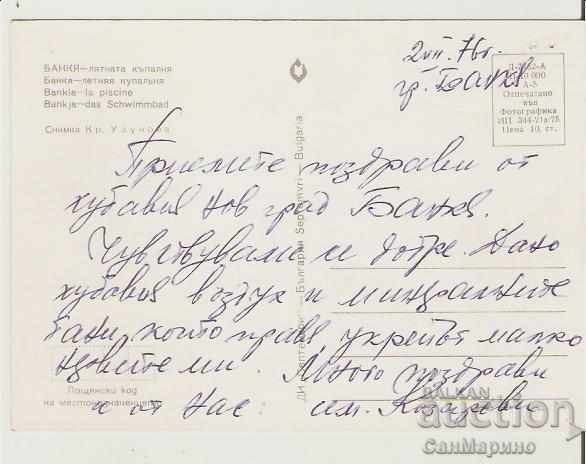 БАНКЯ—лятната къпалня
Банкя—летняя купальня
Bankia—la piscine
Bankja—das Schwimmbad
Снимка Кр. Узунова
2 VII. 76 г.
гр. Банкя
А-5
Отпечатано
във
Фотографика
ИП 344-21а/75
Цена 10 ст.
Приемете поздрави от
хубавия нов град Банкя.
Чувствувам се добре. Дано
хубавия въздух и минералните
бани, които правя укрепят малко
нервите ми. Много поздрави
и от нас: сем.
България Septemvri — Bulgaria
Пощенски код
на местоназначението
BALKAN
auction
СанМарино